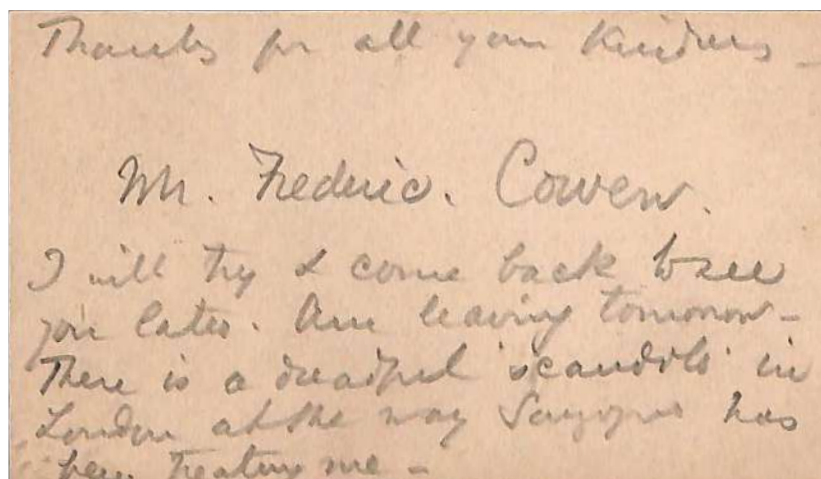 Thanks for all your Kindness –
Mr. Frederic. Cowen.
I will try & come back to see
you later. Am leaving tomorrow –
There is a dreadful 'scandolo' in
London at the way has
been treating me –